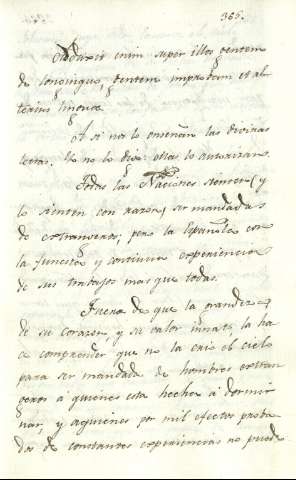 365.
Adduxit enim super illos gentem
de longinquo, gentem improbam et al-
terius linguæ
Asi nos lo enseñan las divinas
letras. Yo no lo digo: ellas lo
Todas las Naciones sienten (y
lo sienten con razon) ser mandadas
de extrangeros; pero la Española con
la funesta y continua experiencia
de sus trabajos mas que todas.
Fuera de que la grandeza
de su corazon, y su valor innato, la ha-
ce comprender que no la crio el cielo
para ser mandada de hombres extran-
geros à quienes esta hecha à domi-
nar, y a quienes por mil efectos proba-
dos de constantes experiencias no puede